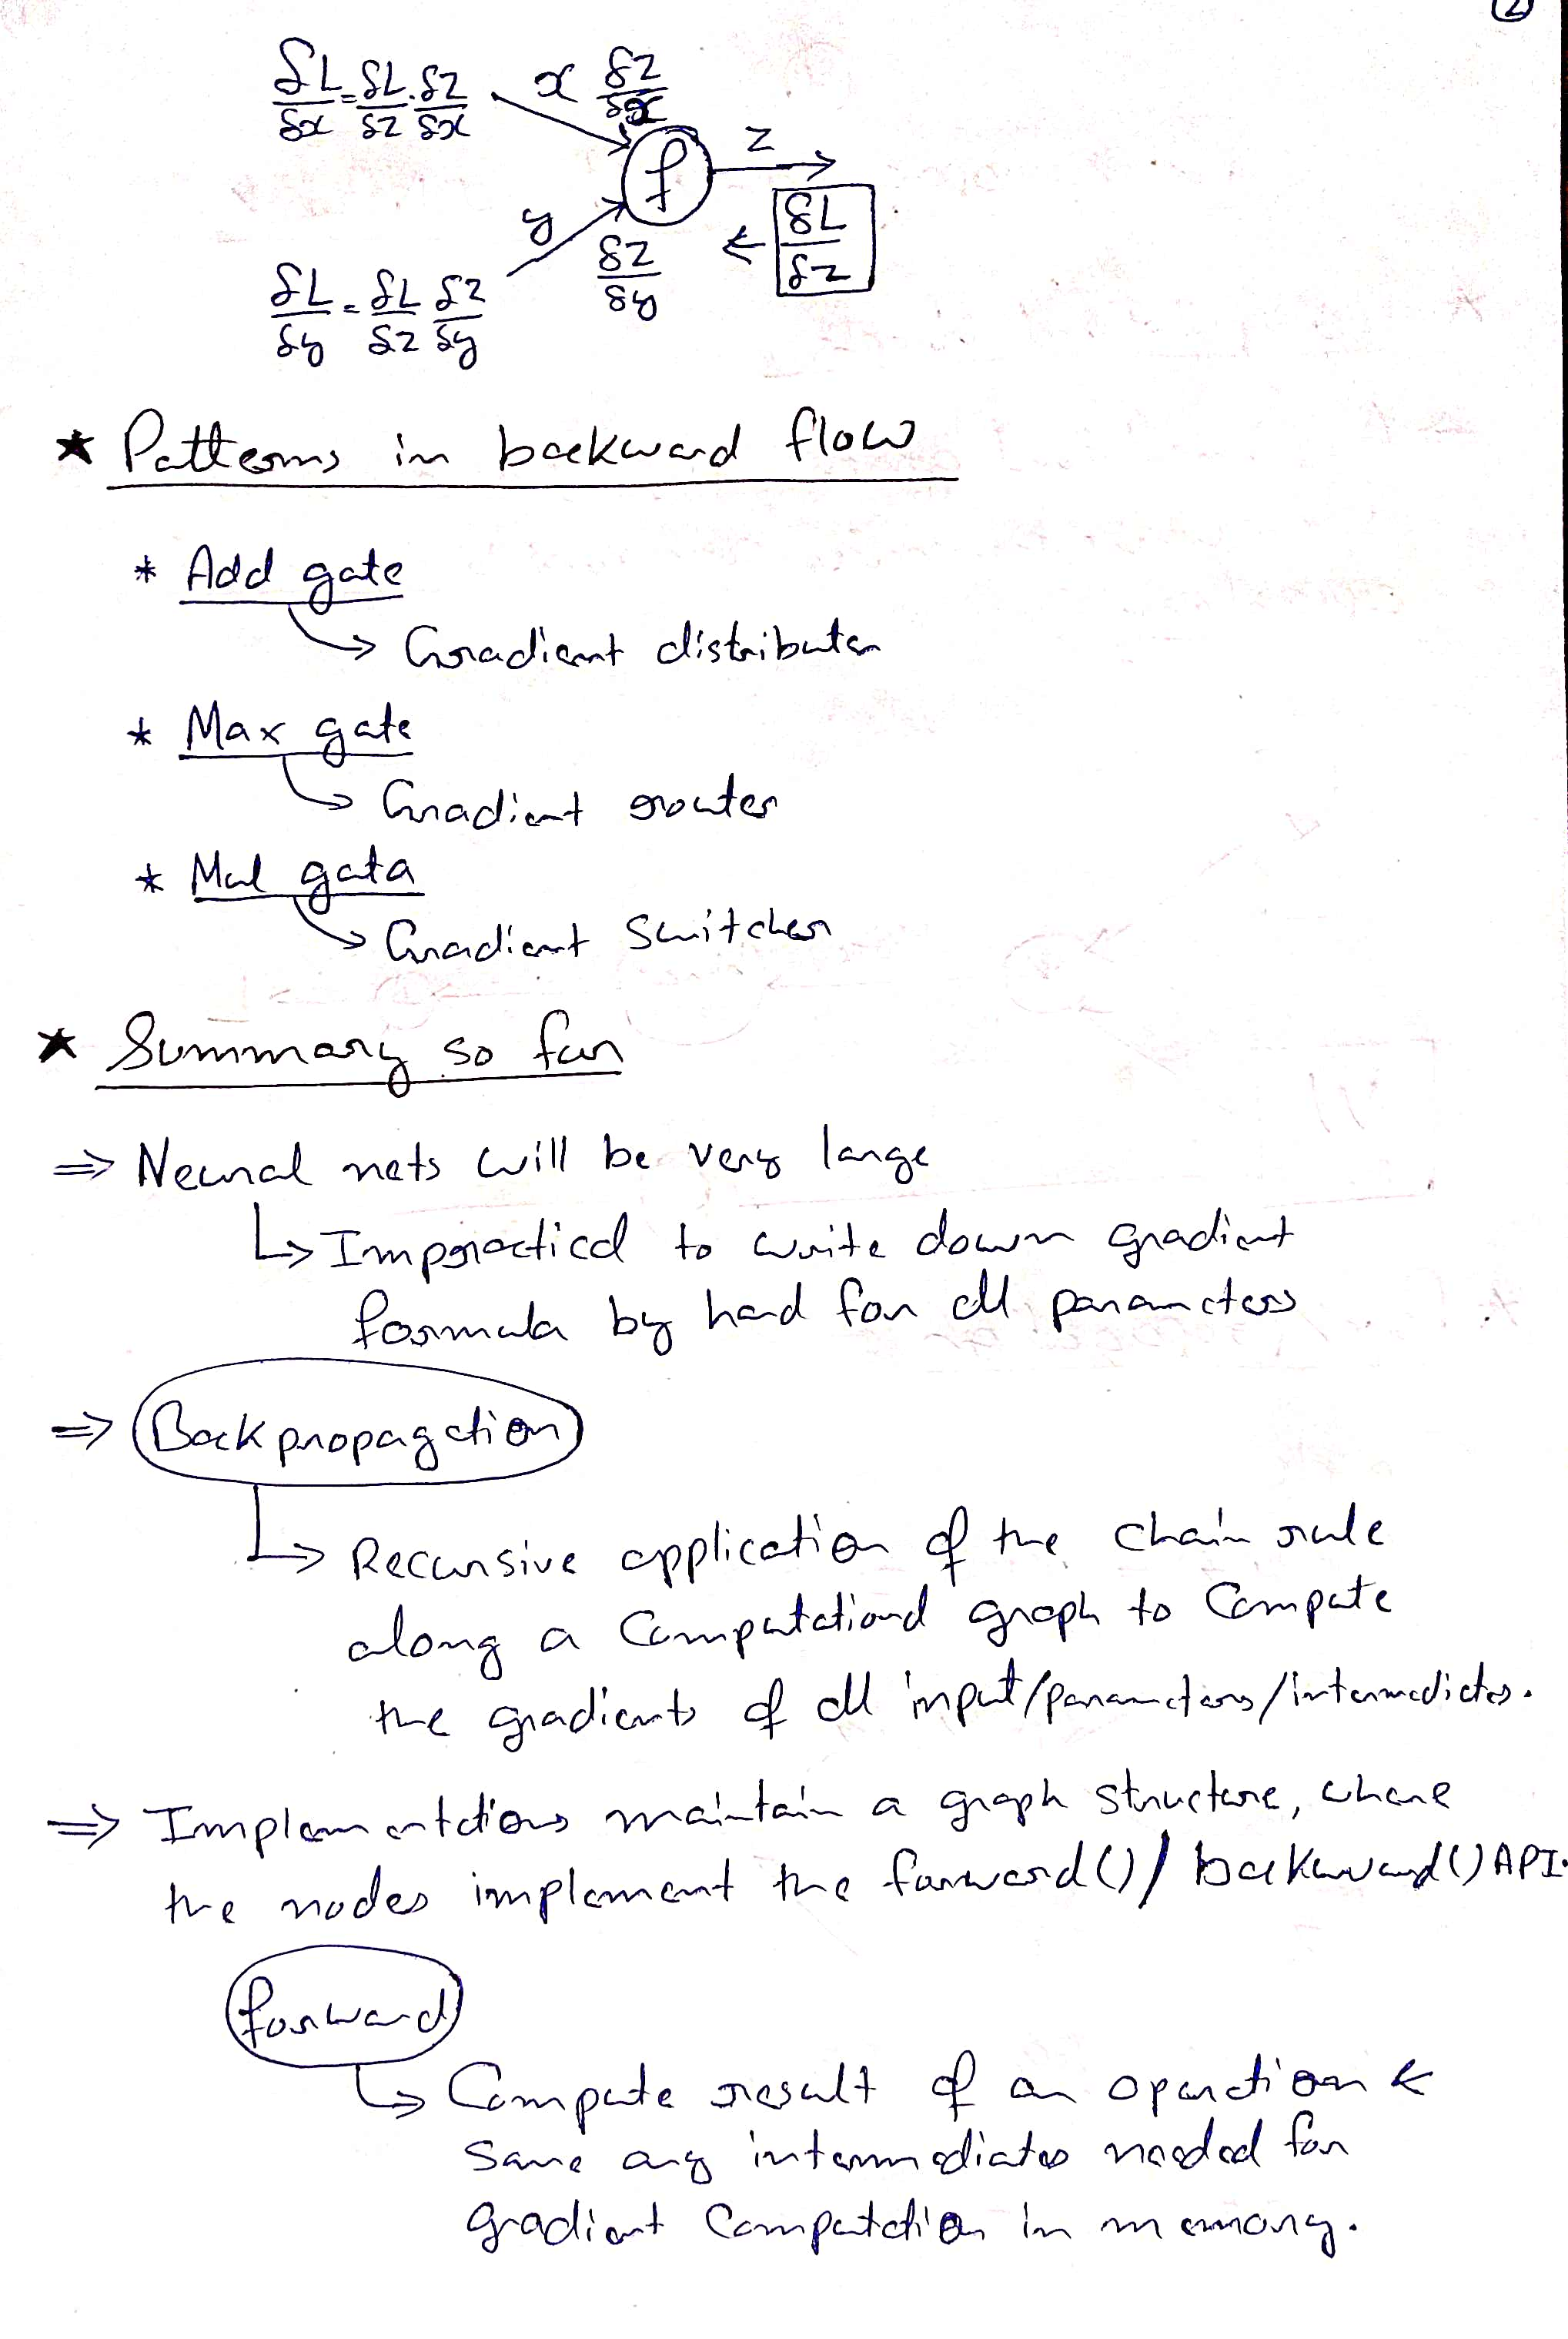 2
δL/δx = δL/δz · δz/δx
x δz/δx
f
z
y
δz/δy
δL/δz
δL/δy = δL/δz δz/δy
* Patterns in backward flow
* Add gate
→ Gradient distributer
* Max gate
→ Gradient router
* Mul gata
→ Gradient switcher
* Summary so far
⇒ Neural nets will be very large
↳ Impractical to write down gradient
formula by hand for all parameters
⇒ Backpropagation
↳ Recursive application of the chain rule
along a computational graph to compute
the gradients of all input/parameters/intermediates.
⇒ Implementations maintain a graph structure, where
the nodes implement the forward()/backward() API.
forward
↳ Compute result of an operation &
save any intermediates needed for
gradient computation in memory.